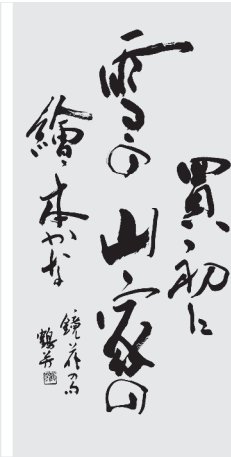 買初に
雪の山家の
繪本かな
鏡花の句